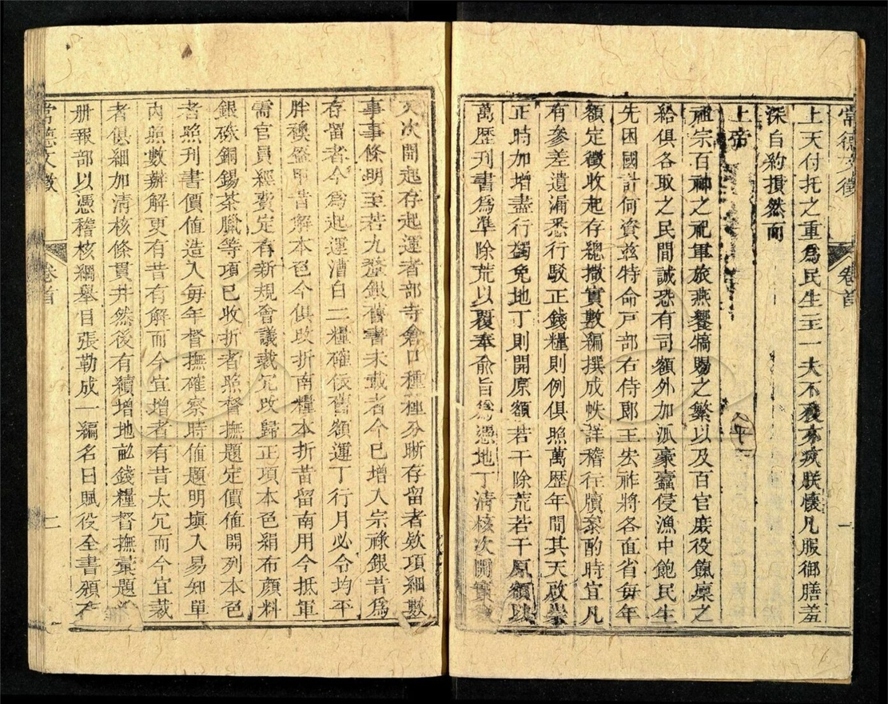 常德文徵 卷首 一
上天付托之重爲民生主一夫不獲亦疚朕懷凡服御膳羞
深自約損然而
上帝
祖宗百神之祀軍旅燕饗犒賜之繁以及百官庶役餼廩之
給俱各取之民間誠恐有司額外加派豪蠹侵漁中飽民生
先困國計何資茲特命戸部右侍郎王宏祚將各直省每年
額定徵收起存總撒實數編撰成帙詳稽往牘叅酌時宜凡
有參差遺漏悉行駁正錢糧則例俱照萬歷年間其天啟崇
正時加增盡行蠲免地丁則開原額若干除荒若干原額以
萬歷刊書爲準除荒以覆奉俞旨爲憑地丁清核次開實徵
又次開起存起運者部寺倉口種種分晰存留者欵項細數
事事條明至若九釐銀舊書未載者今已增入宗祿銀昔爲
存留者今爲起運漕白二糧確依舊額運丁行月必令均平
胖襖盔甲昔解本色今俱改折南糧本折昔留南用今抵軍
需官員經費定有新規會議裁冗改歸正項本色絹布顏料
銀硃銅錫茶臘等項已收折者照督撫題定價值開列本色
者照刊書價值造入每年督撫確察時值題明填入易知單
內照數辦解更有昔有解而今宜增者有昔太冗而今宜裁
者俱細加清核條貫井然後有續增地畝錢糧督撫彙題造
册報部以憑稽核綱舉目張勒成一編名曰賦役全書頒布
常德文徵 卷首 二